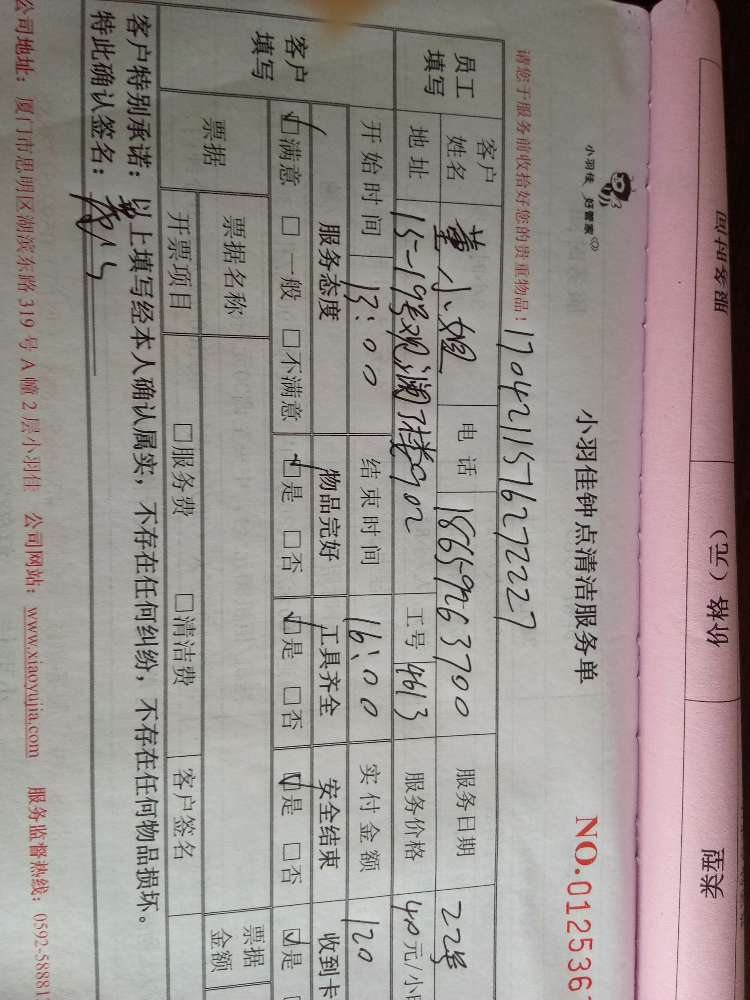 小羽佳 好管家
小羽佳钟点清洁服务单
NO.012536
请您于服务前收拾好您的贵重物品！
17042115762 72227
员工填写
客户姓名 董小姐 电话 18659263700 服务日期 22号
地址 15-19号观澜7楼902 工号 4613 服务价格 40元/小时
开始时间 13:00 结束时间 16:00 实付金额 120
客户填写
服务态度 物品完好 工具齐全 安全结束 收到卡
☑满意 □一般 □不满意 ☑是 □否 ☑是 □否 ☑是 □否 ☑是
票据 票据名称 票据金额
开票项目 □服务费 □清洁费 客户签名
客户特别承诺：以上填写经本人确认属实，不存在任何纠纷，不存在任何物品损坏。
特此确认签名：
公司地址：厦门市思明区湖滨东路319号A幢2层小羽佳 公司网站：www.xiaoyujia.com 服务监督热线：0592-58881
价格（元）
类型